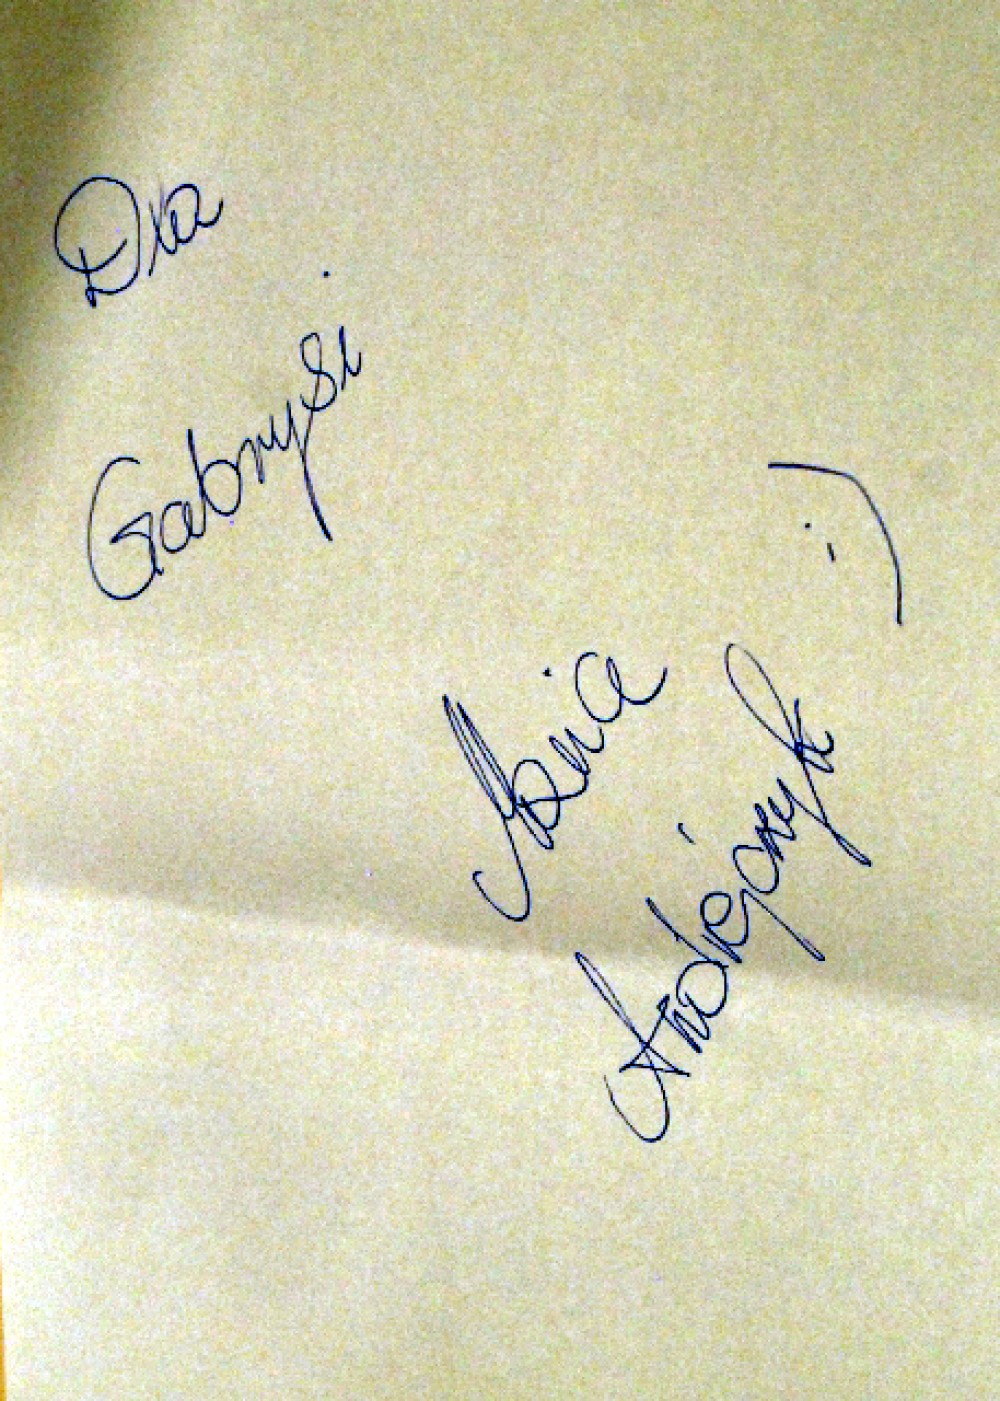 Dla
Gabrysi
:)
Maria
Andrejczyk